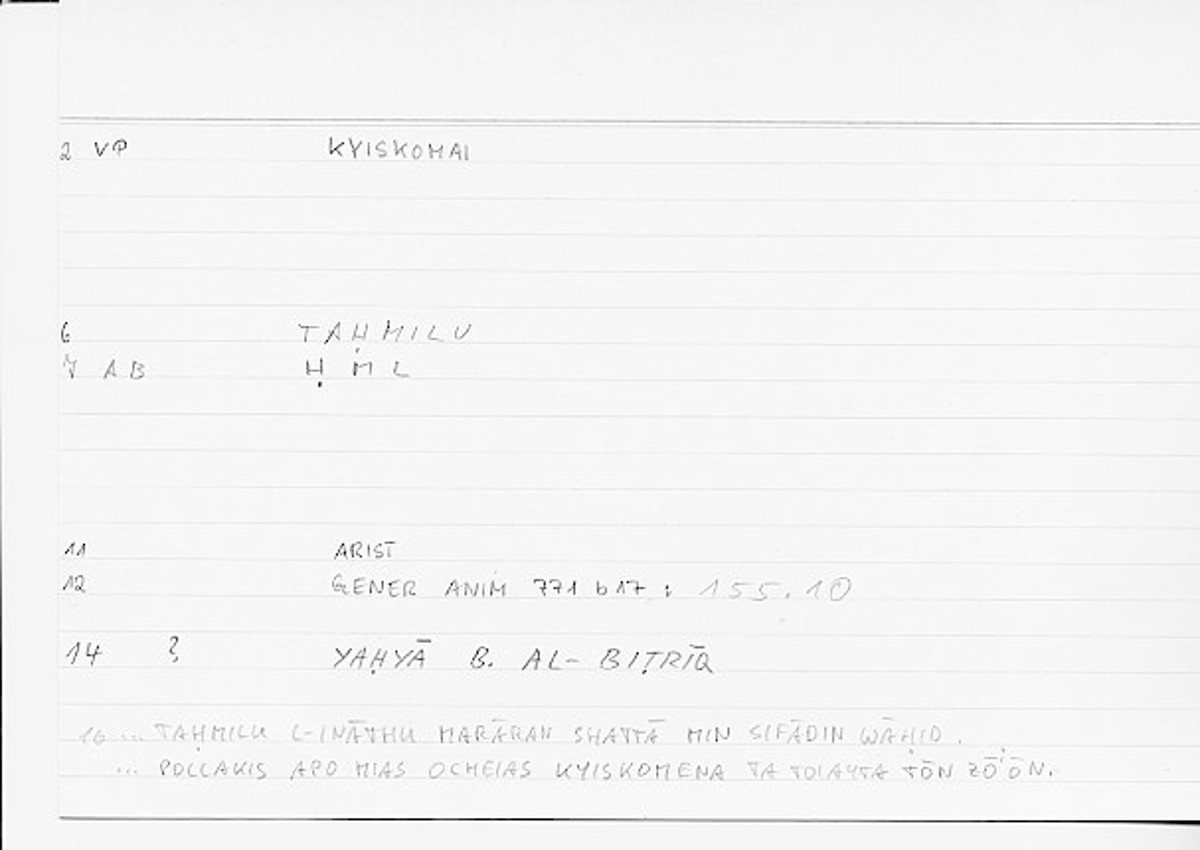 2 VP KYISKOMAI
6 TAḤMILU
7 AB Ḥ M L
11 ARIST
12 GENER ANIM 771 b 17 : 155.10
14 ? YAḤYĀ B. AL-BIṬRĪQ
16 ... TAḤMILU L-INĀTHU MARĀRAN SHATTĀ MIN SIFĀDIN WĀḤID.
... POLLAKIS APO MIAS OCHEIAS KYISKOMENA TA TOIAYTA TŌN ZŌ'ŌN.